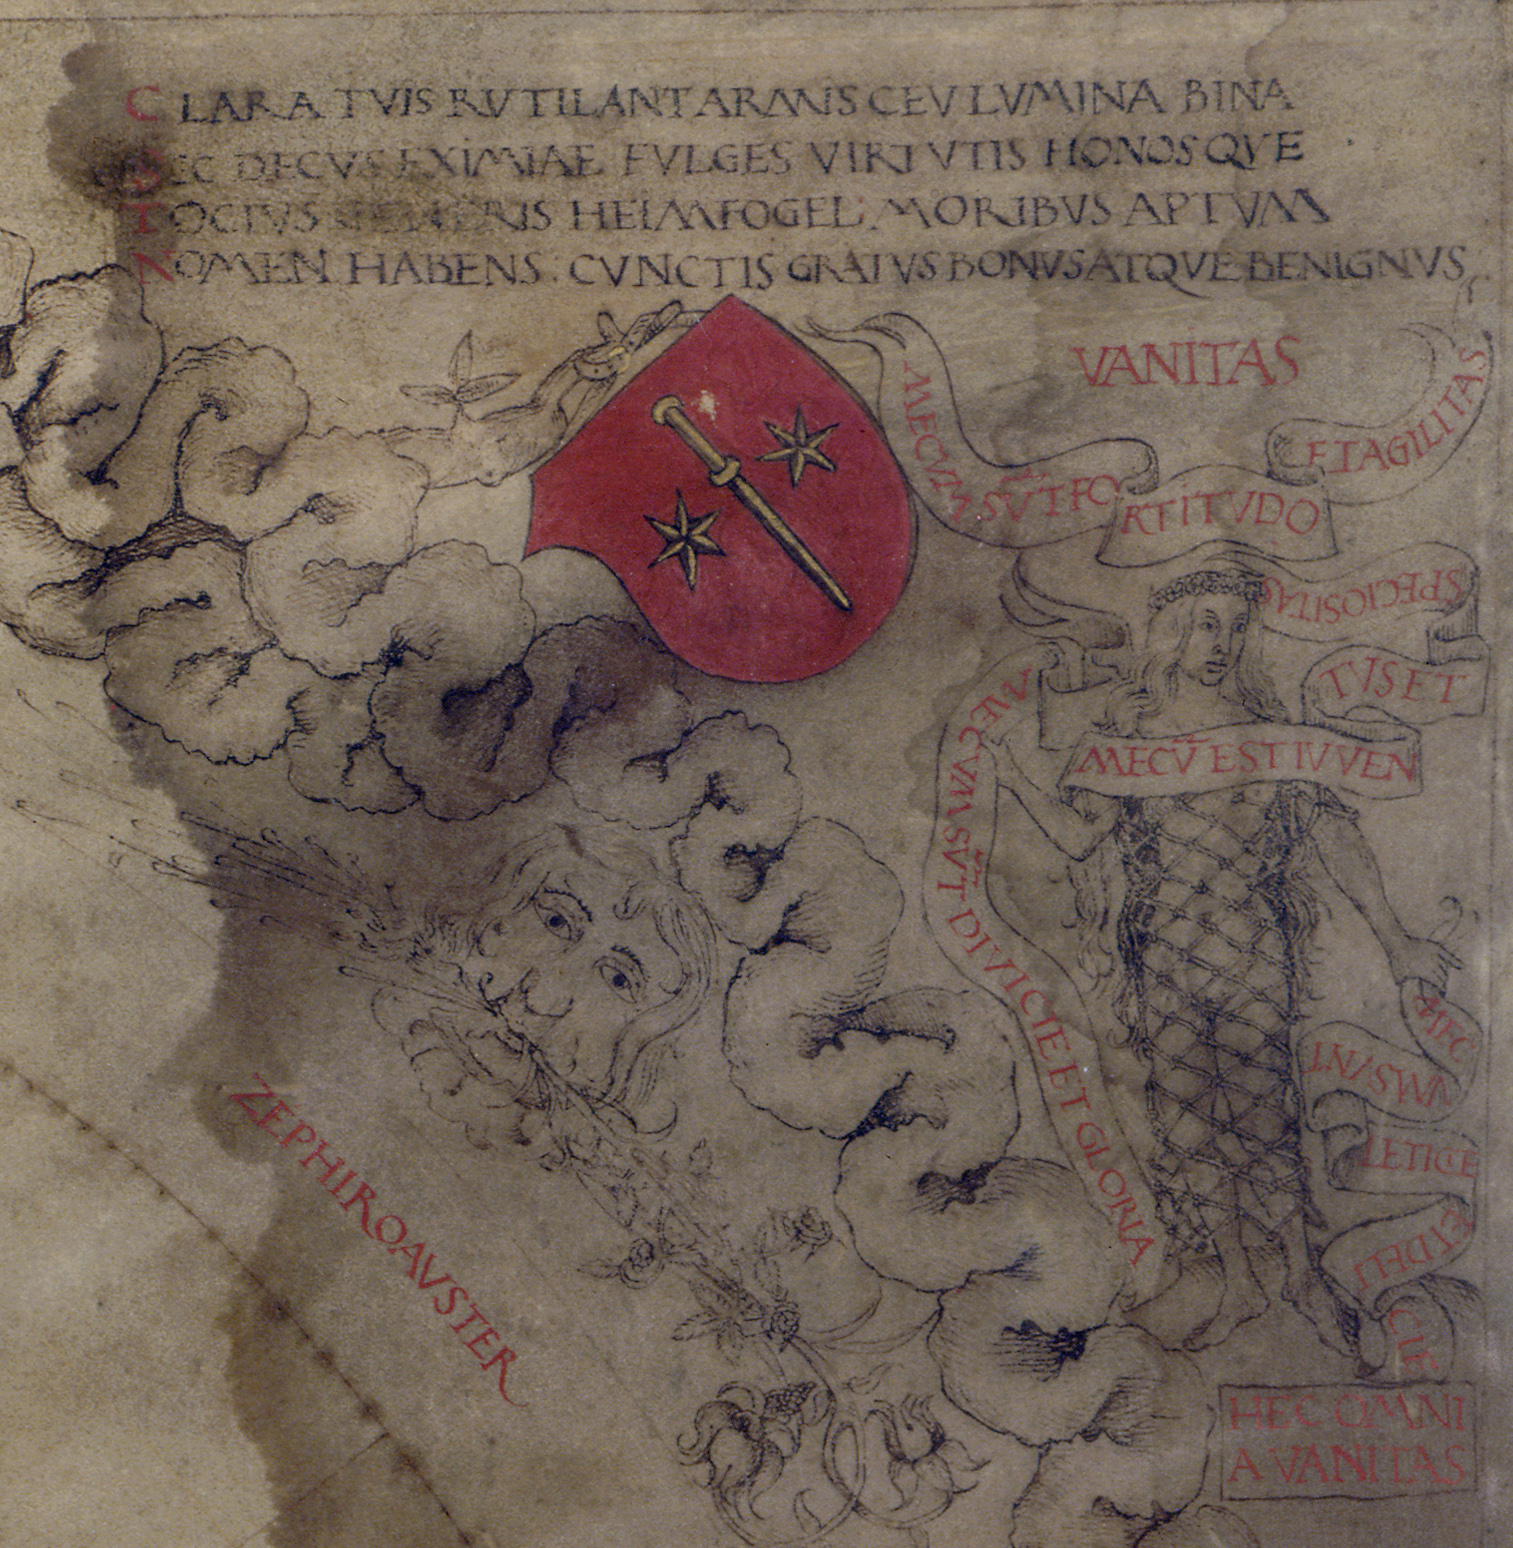 CLARA TVIS RVTILANT ARMIS CEV LVMINA BINA
DECVS EXIMIAE FVLGES VIRTVTIS HONOSQVE
HEIMFOGEL: MORIBVS APTVM
NOMEN HABENS: CVNCTIS GRATVS BONVS ATQVE BENIGNVS
VANITAS
MECVM SVT FORTITVDO
FIAGILITAS
SPECIOSITAS
MECV̄ EST IVVEN
TVS ET
MECVM SVT DIVICIE ET GLORIA
MEC
VM SVNT
LETICIE
ET DELI
CIE
ZEPHIROAVSTER
HEC OMNI
A VANITAS